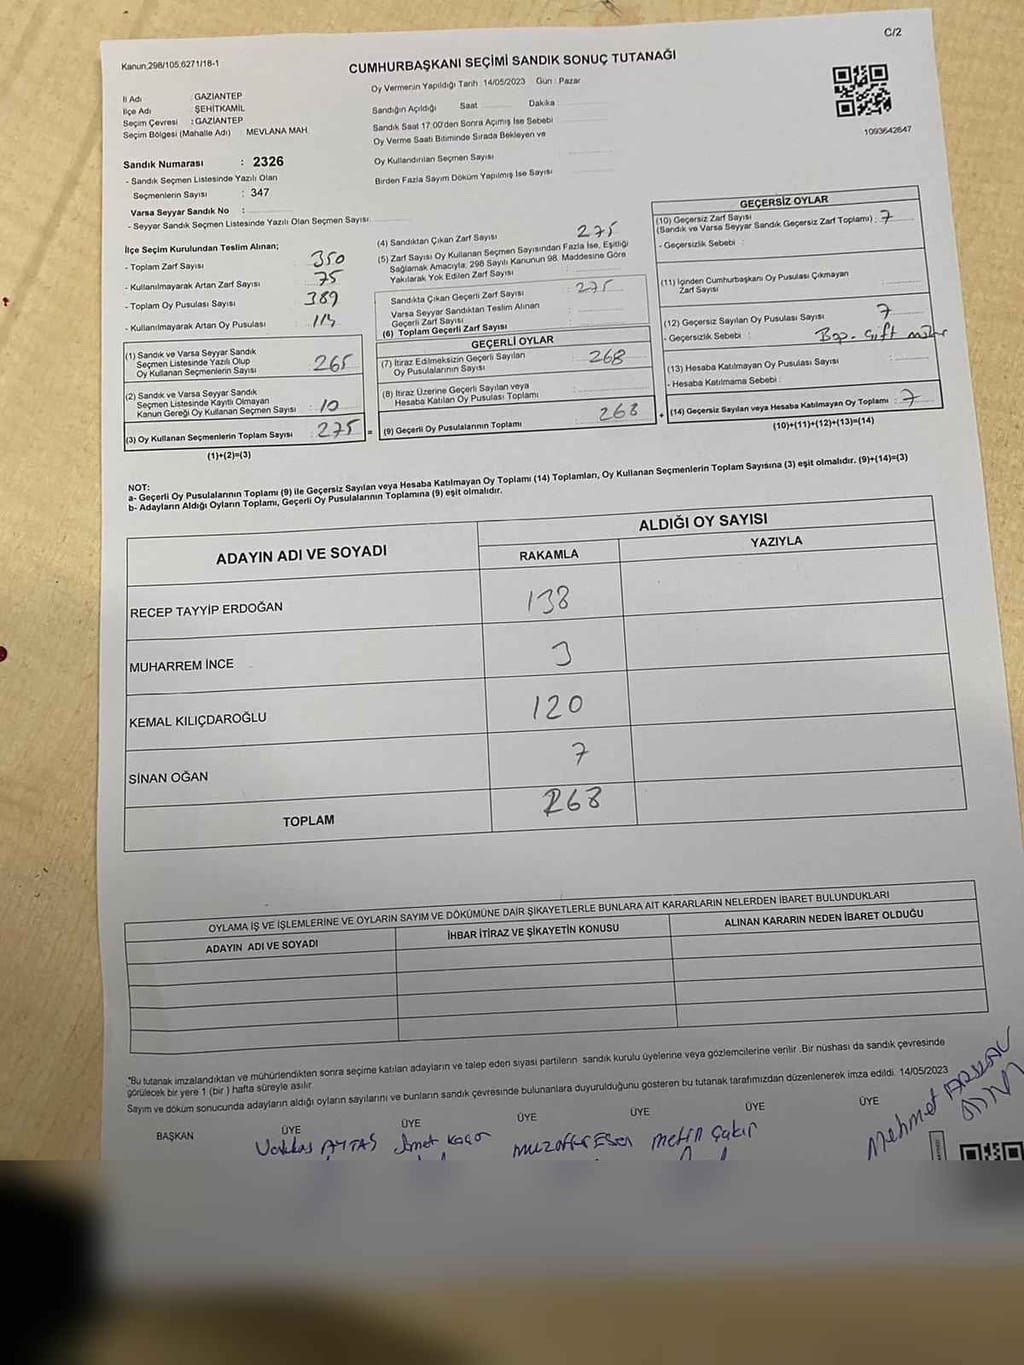 C/2
Kanun,298/105,6271/18-1
CUMHURBAŞKANI SEÇİMİ SANDIK SONUÇ TUTANAĞI
Oy Vermenin Yapıldığı Tarih : 14/05/2023 Gün : Pazar
İl Adı : GAZİANTEP
İlçe Adı : ŞEHİTKAMİL
Seçim Çevresi : GAZİANTEP
Seçim Bölgesi (Mahalle Adı) MEVLANA MAH.
Sandığın Açıldığı Saat Dakika
Sandık Saat 17:00'den Sonra Açımış İse Sebebi
Oy Verme Saati Bitiminde Sırada Bekleyen ve
Oy Kullandırılan Seçmen Sayısı
Birden Fazla Sayım Döküm Yapılmış İse Sayısı
1093642647
Sandık Numarası : 2326
- Sandık Seçmen Listesinde Yazılı Olan
Seçmenlerin Sayısı : 347
Varsa Seyyar Sandık No :
- Seyyar Sandık Seçmen Listesinde Yazılı Olan Seçmen Sayısı
İlçe Seçim Kurulundan Teslim Alınan;
- Toplam Zarf Sayısı 350
- Kullanılmayarak Artan Zarf Sayısı 75
- Toplam Oy Pusulası Sayısı 389
- Kullanılmayarak Artan Oy Pusulası 114
(1) Sandık ve Varsa Seyyar Sandık
Seçmen Listesinde Yazılı Olup
Oy Kullanan Seçmenlerin Sayısı : 265
(2) Sandık ve Varsa Seyyar Sandık
Seçmen Listesinde Kayıtlı Olmayan
Kanun Gereği Oy Kullanan Seçmen Sayısı : 10
(3) Oy Kullanan Seçmenlerin Toplam Sayısı : 275
(1)+(2)=(3)
(4) Sandıktan Çıkan Zarf Sayısı 275
(5) Zarf Sayısı Oy Kullanan Seçmen Sayısından Fazla İse, Eşitliği
Sağlamak Amacıyla, 298 Sayılı Kanunun 98. Maddesine Göre
Yakılarak Yok Edilen Zarf Sayısı
Sandıkta Çıkan Geçerli Zarf Sayısı : 275
Varsa Seyyar Sandıktan Teslim Alınan
Geçerli Zarf Sayısı
(6) Toplam Geçerli Zarf Sayısı
GEÇERLİ OYLAR
(7) İtiraz Edilmeksizin Geçerli Sayılan
Oy Pusulalarının Sayısı 268
(8) İtiraz Üzerine Geçerli Sayılan veya
Hesaba Katılan Oy Pusulası Toplamı
= (9) Geçerli Oy Pusulalarının Toplamı 268
GEÇERSİZ OYLAR
(10) Geçersiz Zarf Sayısı
(Sandık ve Varsa Seyyar Sandık Geçersiz Zarf Toplamı) : 7
- Geçersizlik Sebebi :
(11) İçinden Cumhurbaşkanı Oy Pusulası Çıkmayan
Zarf Sayısı
(12) Geçersiz Sayılan Oy Pusulası Sayısı 7
- Geçersizlik Sebebi : Boş - Çift mühür
(13) Hesaba Katılmayan Oy Pusulası Sayısı
- Hesaba Katılmama Sebebi :
+ (14) Geçersiz Sayılan veya Hesaba Katılmayan Oy Toplamı : 7
(10)+(11)+(12)+(13)=(14)
NOT:
a- Geçerli Oy Pusulalarının Toplamı (9) ile Geçersiz Sayılan veya Hesaba Katılmayan Oy Toplamı (14) Toplamları, Oy Kullanan Seçmenlerin Toplam Sayısına (3) eşit olmalıdır. (9)+(14)=(3)
b- Adayların Aldığı Oyların Toplamı, Geçerli Oy Pusulalarının Toplamına (9) eşit olmalıdır.
ADAYIN ADI VE SOYADI
ALDIĞI OY SAYISI
RAKAMLA
YAZIYLA
RECEP TAYYİP ERDOĞAN 138
MUHARREM İNCE 3
KEMAL KILIÇDAROĞLU 120
SİNAN OĞAN 7
TOPLAM 268
OYLAMA İŞ VE İŞLEMLERİNE VE OYLARIN SAYIM VE DÖKÜMÜNE DAİR ŞİKAYETLERLE BUNLARA AİT KARARLARIN NELERDEN İBARET BULUNDUKLARI
ADAYIN ADI VE SOYADI
İHBAR İTİRAZ VE ŞİKAYETİN KONUSU
ALINAN KARARIN NEDEN İBARET OLDUĞU
"Bu tutanak imzalandıktan ve mühürlendikten sonra seçime katılan adayların ve talep eden siyasi partilerin sandık kurulu üyelerine veya gözlemcilerine verilir .Bir nüshası da sandık çevresinde
görülecek bir yere 1 (bir ) hafta süreyle asılır.
Sayım ve döküm sonucunda adayların aldığı oyların sayılarını ve bunların sandık çevresinde bulunanlara duyurulduğunu gösteren bu tutanak tarafımızdan düzenlenerek imza edildi. 14/05/2023
BAŞKAN ÜYE ÜYE ÜYE ÜYE ÜYE ÜYE
AYTAŞ
muzaffer Esen
metin Çakır
Mehmet ARSLAN